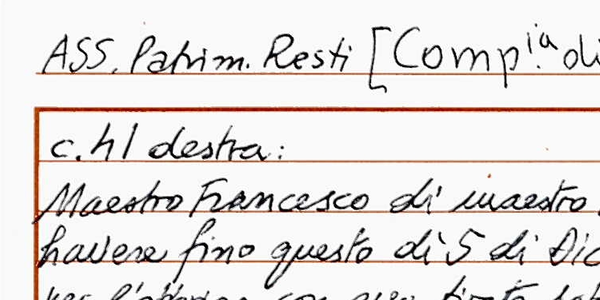 ASS. Patrim. Resti [Comp.ia di
c. 41 destra:
Maestro Francesco di maestro
havere fino questo dì 5 di Dic
per l'
con